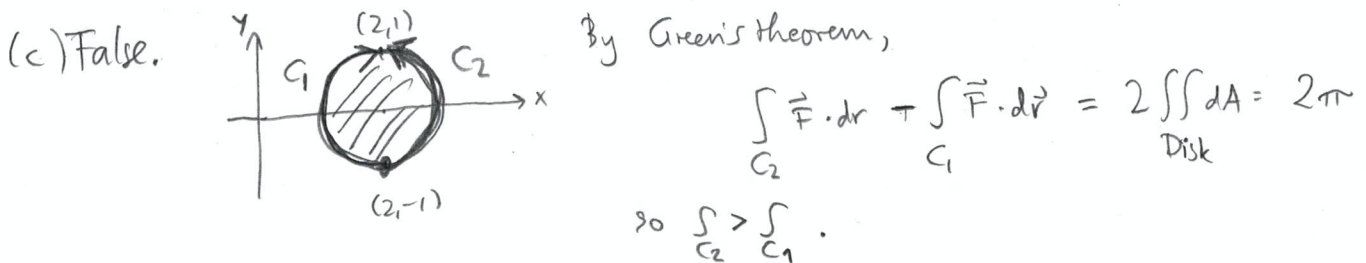 (c) False.
y
(2,1)
C₁
C₂
x
(2,-1)
By Green's theorem,
∫_{C₂} F⃗ · dr - ∫_{C₁} F⃗ · dr⃗ = 2 ∬_{Disk} dA = 2π
so ∫_{C₂} > ∫_{C₁} .